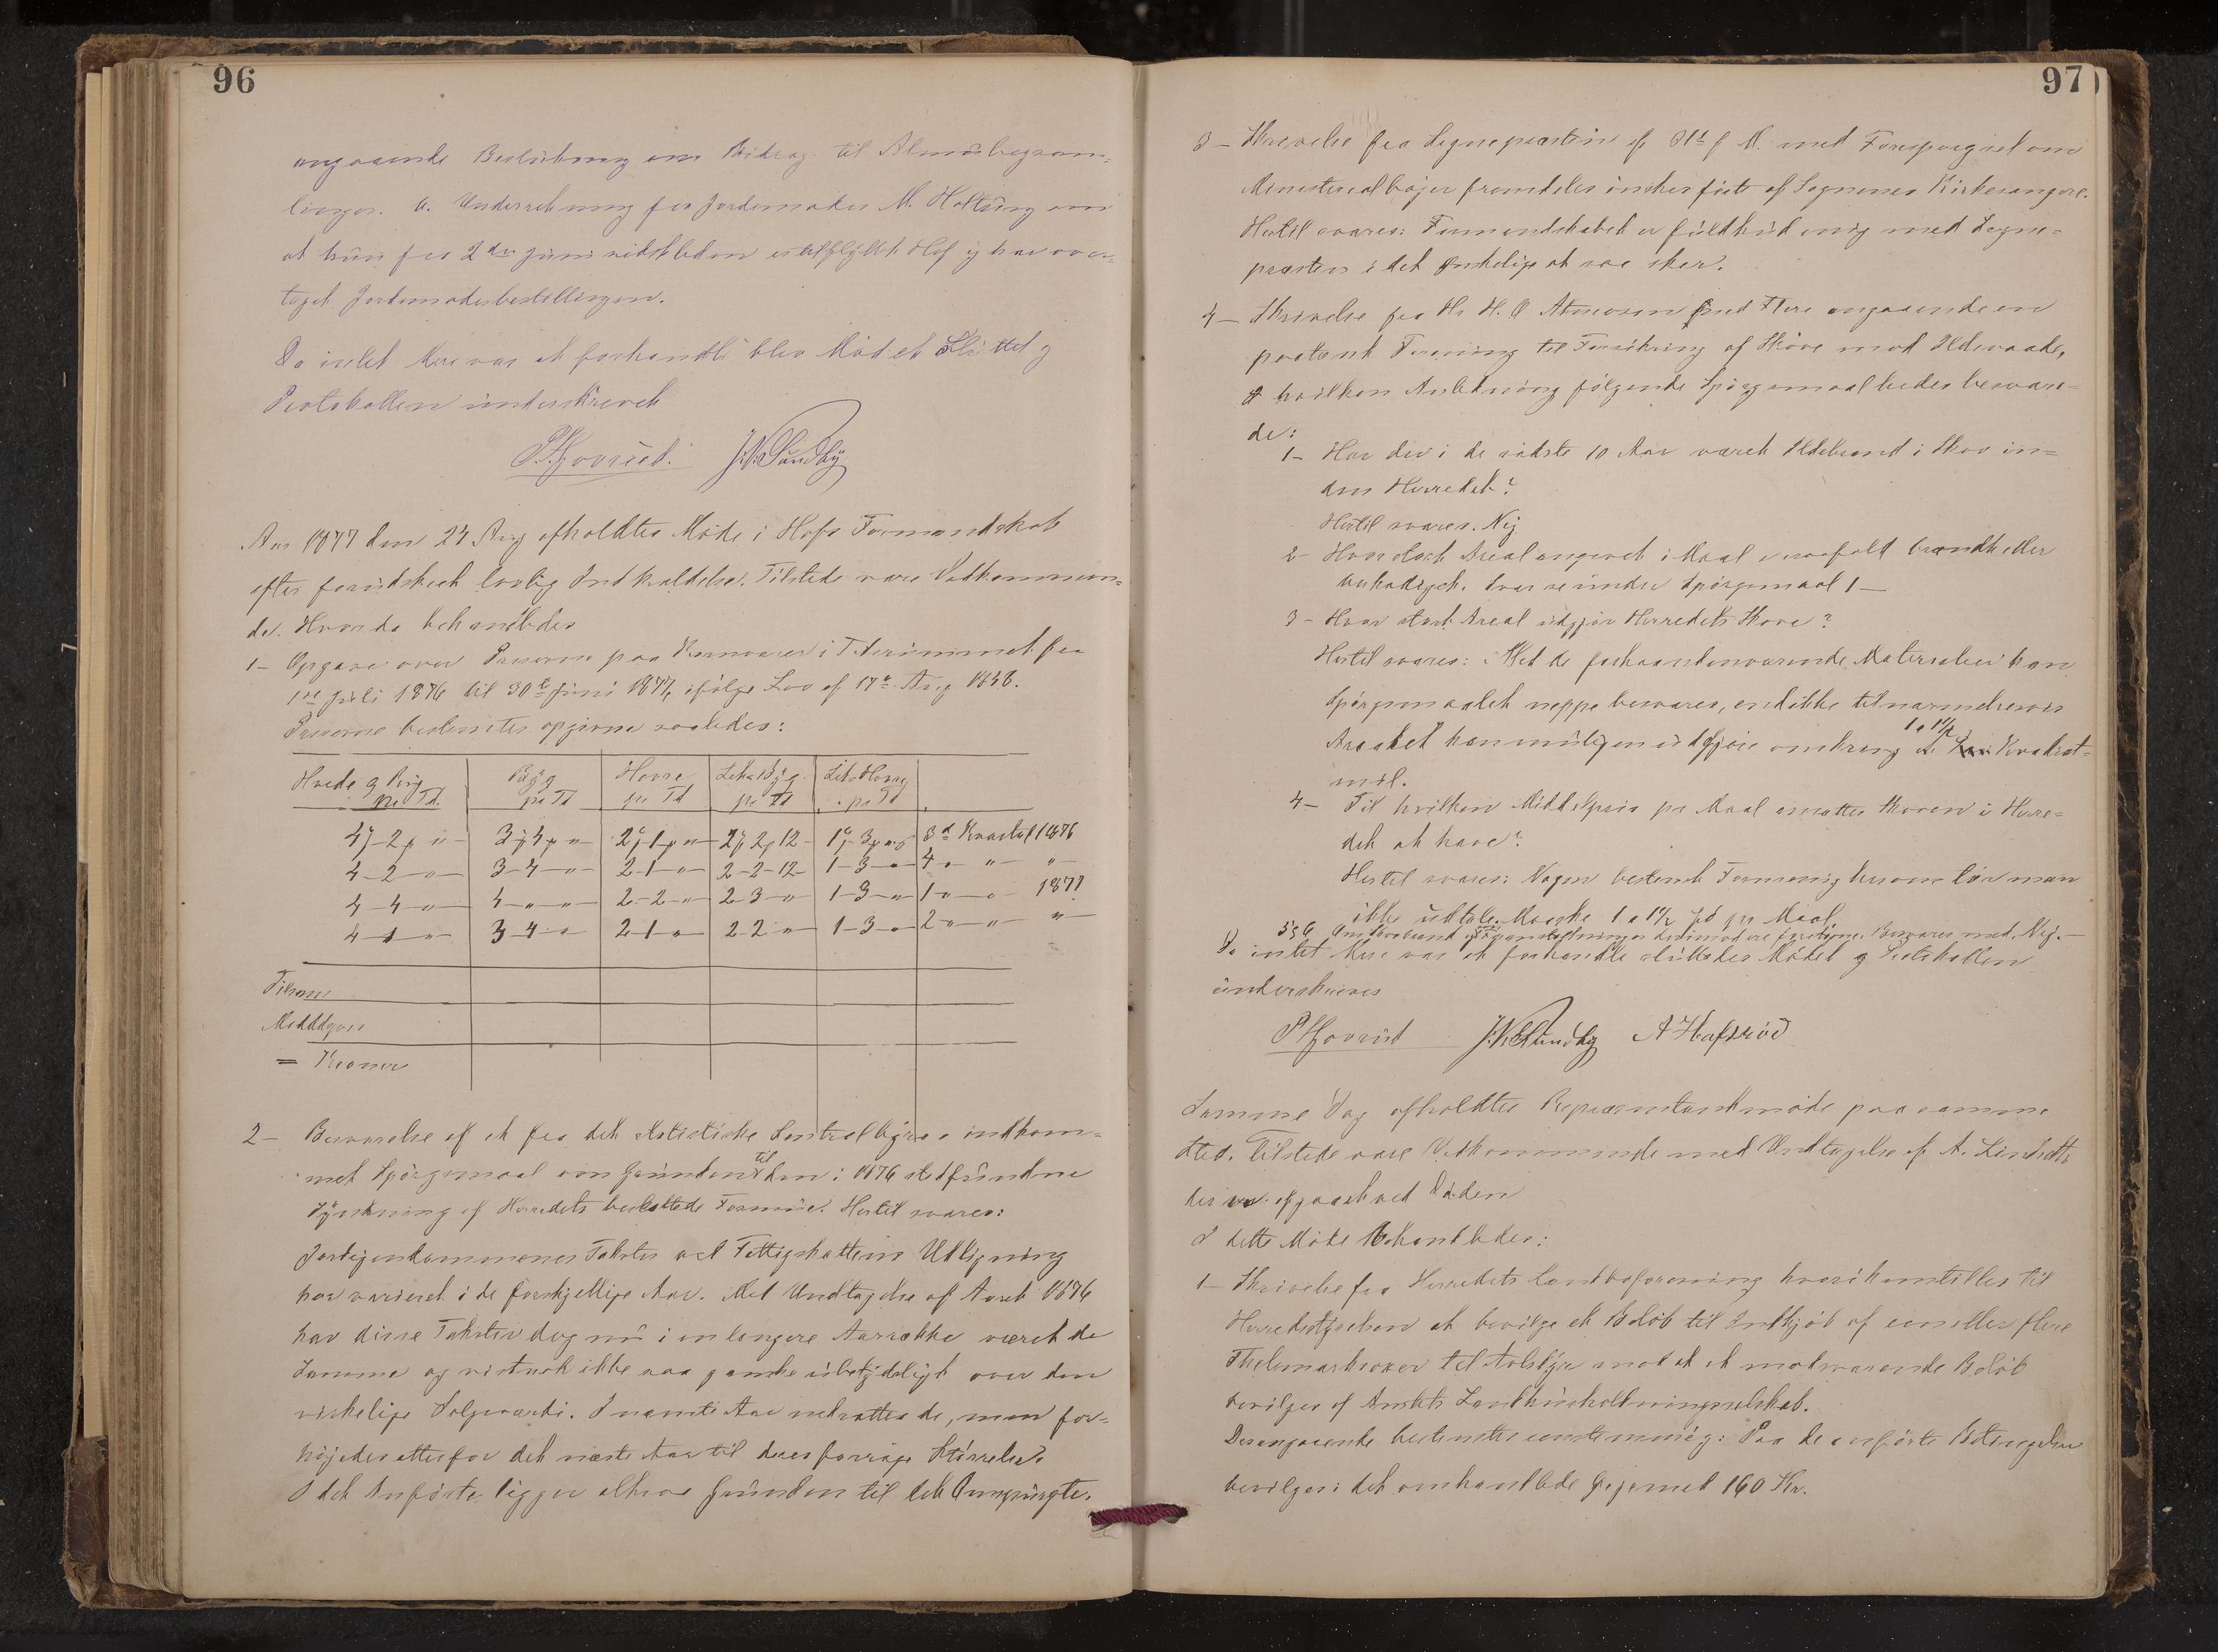 96
angaaende Beslutning om Bidrag til Almuebogsam=
linger. 6. Underretning fra Jordemoder M. Holtung om
at hun fra 2den Juni sidstleden er tilflyttet Hof og har over=
taget Jordemoderbestillingen.
Da intet Mere var at forhandle blev Mødet Sluttet og
Protokollen underskrevet
P. Hjovrud. J. N. Sundby
Aar 1877 den 24 Aug afholdtes Møde i Hofs Formandskab
efter forudskeet lovlig Indkaldelse. Tilstede vare Vedkommen=
de. Hvorda behandledes
1- Opgave over Priserne paa Kornvarer i Tidsrummet fra
1ste Juli 1876 til 30te Juni 1877, ifølge Lov af 17de Aug 1848.
Priserne bestemtes opgivne saaledes:
Hvede og Rug pr Td. Byg pr Td Havre pr Td pr Td pr Td
4-2 " 3-4 " 2-1 " 2-2-12 1-3 " 3d Kvartal 1876
4-2-"- 3-4-"- 2-1-"- 2-2-12- 1-3-"- 4-"- "- "-
4-4-"- 4-"-"- 2-2-"- 2-3-"- 1-3-"- 1-"- " 1877
4-1-"- 3-4-"- 2-1-"- 2-2-"- 1-3-"- 2-"- "- "-
Tilsam
Middelpris
= Kroner
2- Besvarelse af et fra det statistiske Centralbyraa indkom=
met Spørgsmaal om Grunden til den i 1876 stedfundne
Synkning af Herredets beskattede Formue. Hertil svares:
Jordejendommenes Takster ved Fattigskattens Udligning
har varieret i de forskjellige Aar. Med Undtagelse af Aaret 1876
har disse Takster dog nu i en længere Aarrække været de
Samme og vistnok ikke saa ganske ubetydeligt over den
virkelige Salgsværdi. I nævnte Aar nedsattes de, men for=
højedes atter for det næste Aar til deres forrige Størrelse.
I det Anførte ligger altsaa Grunden til det Omspurgte.
97
3- Skrivelse fra Sognepræsten af 31te f. M. med Forespørgsel om
Ministerialbøger fremdeles ønskes ført af Sognenes Kirkesangere.
Hertil svares: Formandskabet er fuldkommen enig med Sogne=
præsten i det Ønskelige at saa sker.
4- Skrivelse fra Hr H. O Atmosen med Flere angaaende en
paatænkt Forening til Forsikring af Skove mod Ildsvaade,
i hvilken Anledning følgende Spørgsmaal bedes besvare=
de:
1- Har der i de sidste 10 Aar været Ildebrand i Skov in=
den Herredet?
Hertil svares. Nej
2- Hvor stort Areal angivet i Maal er isaafald brændt eller
beskadiget. Svar se under Spørgsmaal 1-
3- Hvor stort Areal udgjør Herredets Skove?
Hertil svares: Med de forhaandenværende Materialier kan
Spørgsmaalet neppe besvares, end ikke tilnærmelsesvis
Arealet kan muligens udgjøre omkring 1 a 1½ Kvadrat=
mil.
4- Til hvilken Middelpris pr Maal ansættes Skoven i Herre=
det at have?
Hertil svares: Nogen bestemt Formening herom tør man
ikke udtale. Maaske 1 a 1½ Spd pr Maal.
5 & 6 Besvares med. Nej.-
Da intet Mere var at forhandle sluttedes Mødet og Protokollen
underskreves
P Hjovrud J. N. Sundby A Hafsrød
Samme Dag afholdtes Repræsentantmøde paa samme
Sted. Tilstede vare Vedkommende med Undtagelse af A. Linskott
der er afgaaet ved Døden
I dette Møde behandledes:
1- Skrivelse fra Herredets Landboforening hvori henstilles til
Herredsstyrelsen at bevilge et Beløb til Indkjøb af een eller flere
Thelemarksoxer til Avlsdyr mod at et modsvarende Beløb
bevilges af Amtets Landhusholdningsselskab.
Desangaaende bestemtes eenstemmig: Paa de anførte Betingelser
bevilges i det omhandlede Øjemed 160 Kr.